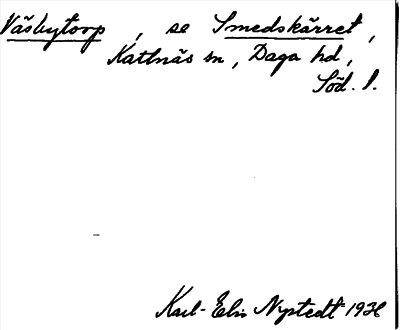 Väsbytorp, se Smedskärret,
Kattnäs sn, Daga hd,
Söd. l.
Karl-Elis Nystedt 1936